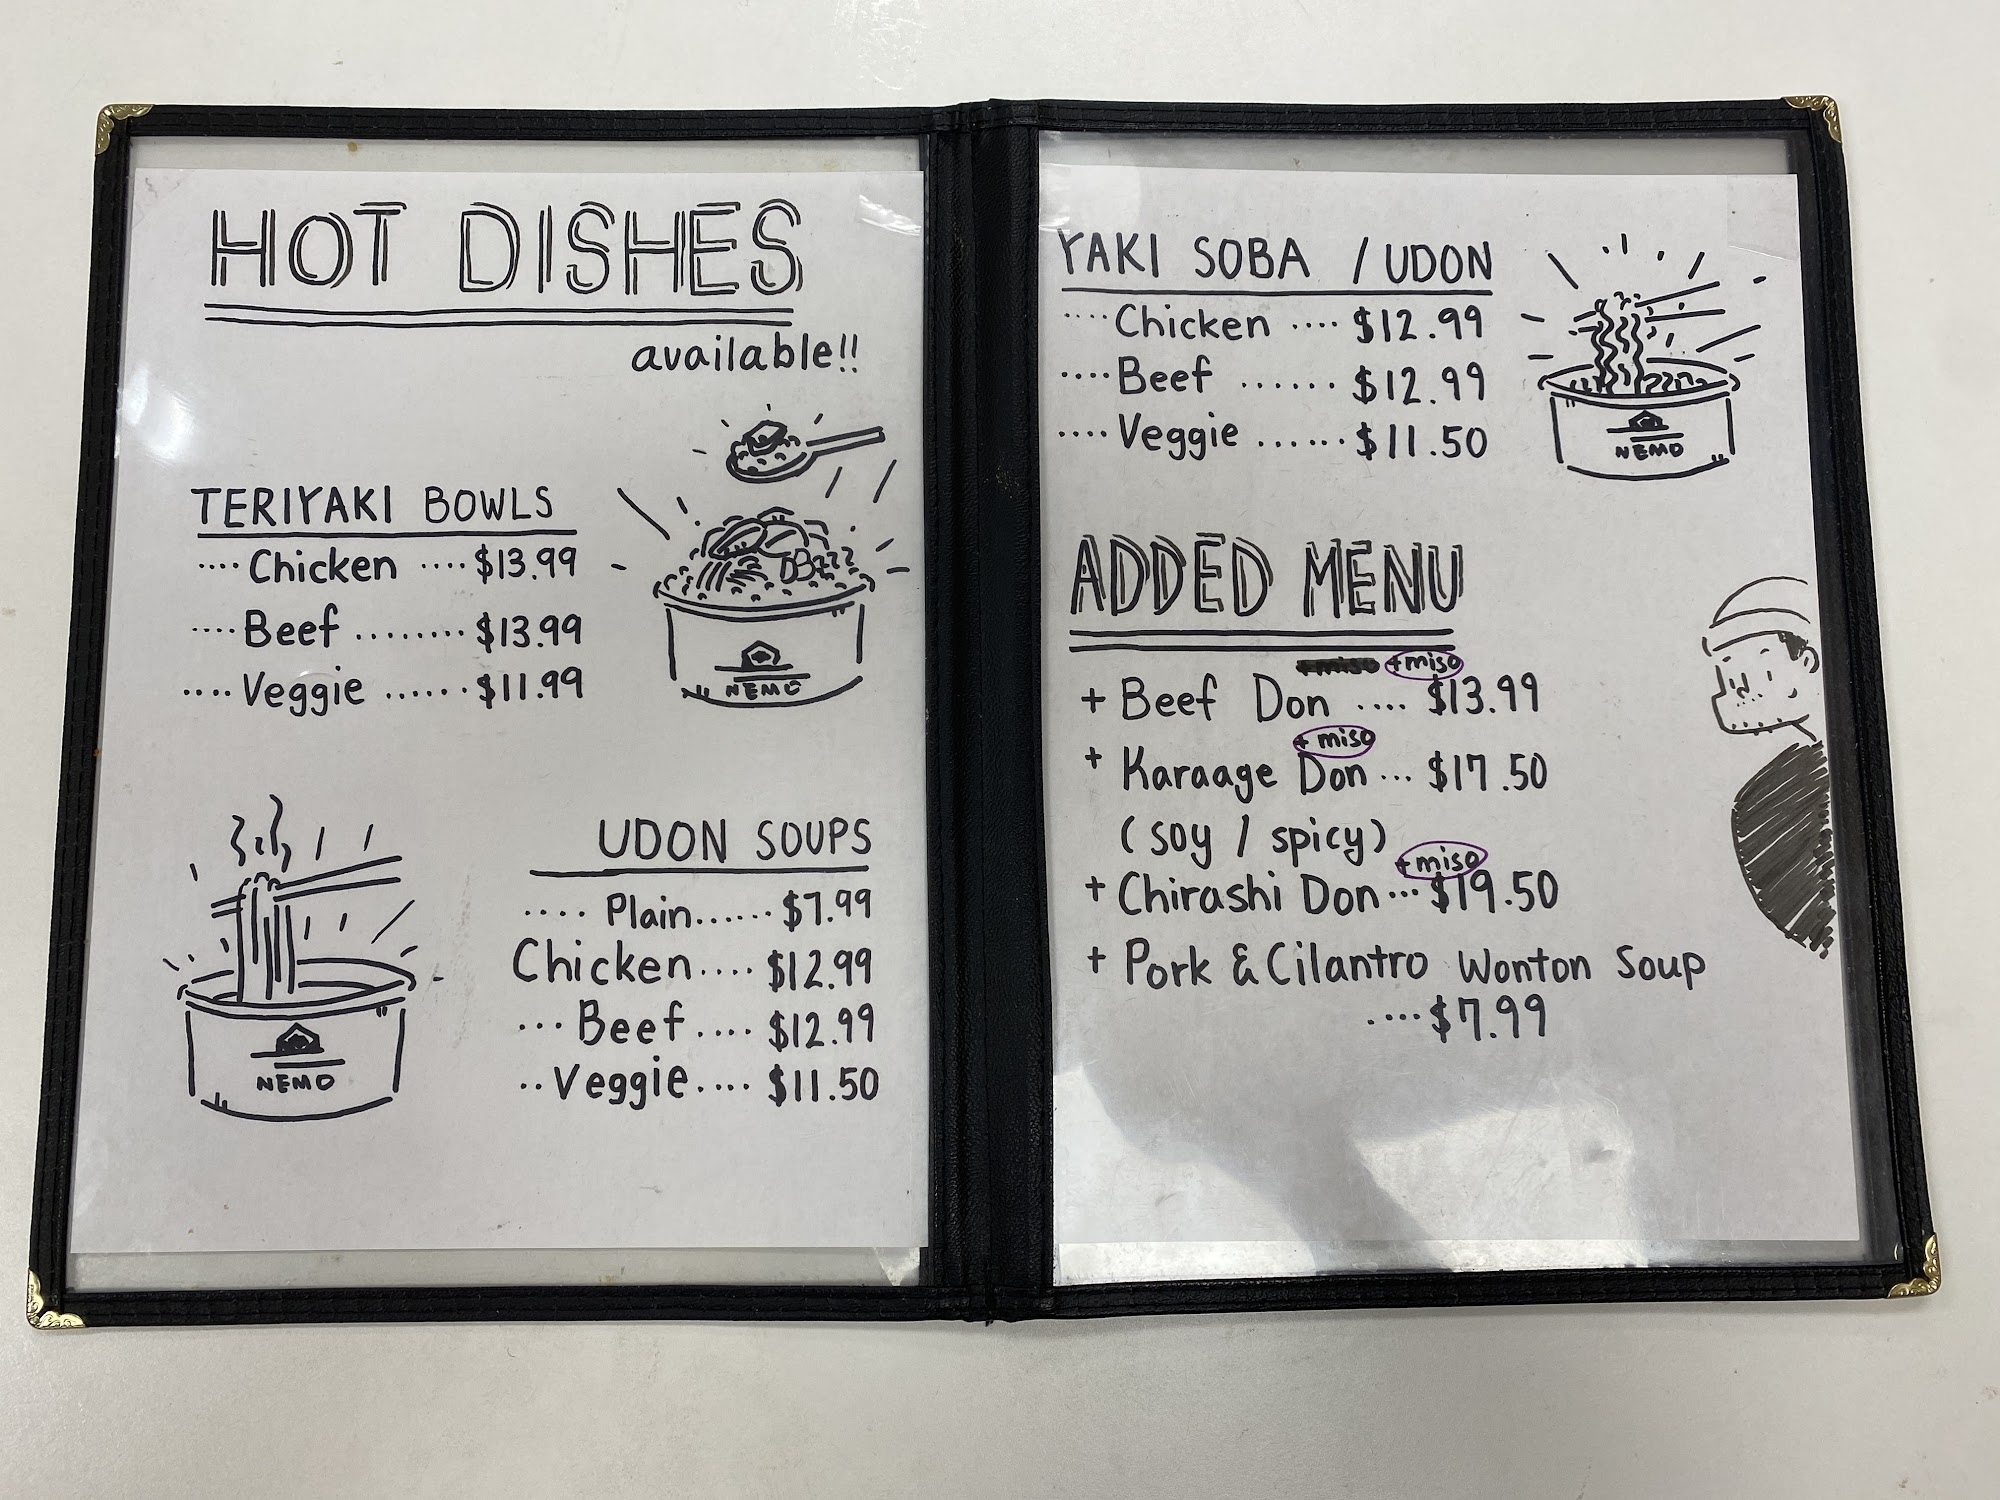 HOT DISHES
available!!
TERIYAKI BOWLS
.... Chicken .... $13.99
.... Beef ........ $13.99
.... Veggie ...... $11.99
NEMO
UDON SOUPS
.... Plain...... $7.99
Chicken.... $12.99
... Beef.... $12.99
.. Veggie.... $11.50
NEMO
YAKI SOBA / UDON
.... Chicken .... $12.99
.... Beef ...... $12.99
.... Veggie ...... $11.50
NEMO
ADDED MENU
+miso +miso
+ Beef Don .... $13.99
+ miso
+ Karaage Don ... $17.50
(soy / spicy)
+miso
+ Chirashi Don ... $19.50
+ Pork & Cilantro Wonton Soup
.... $7.99